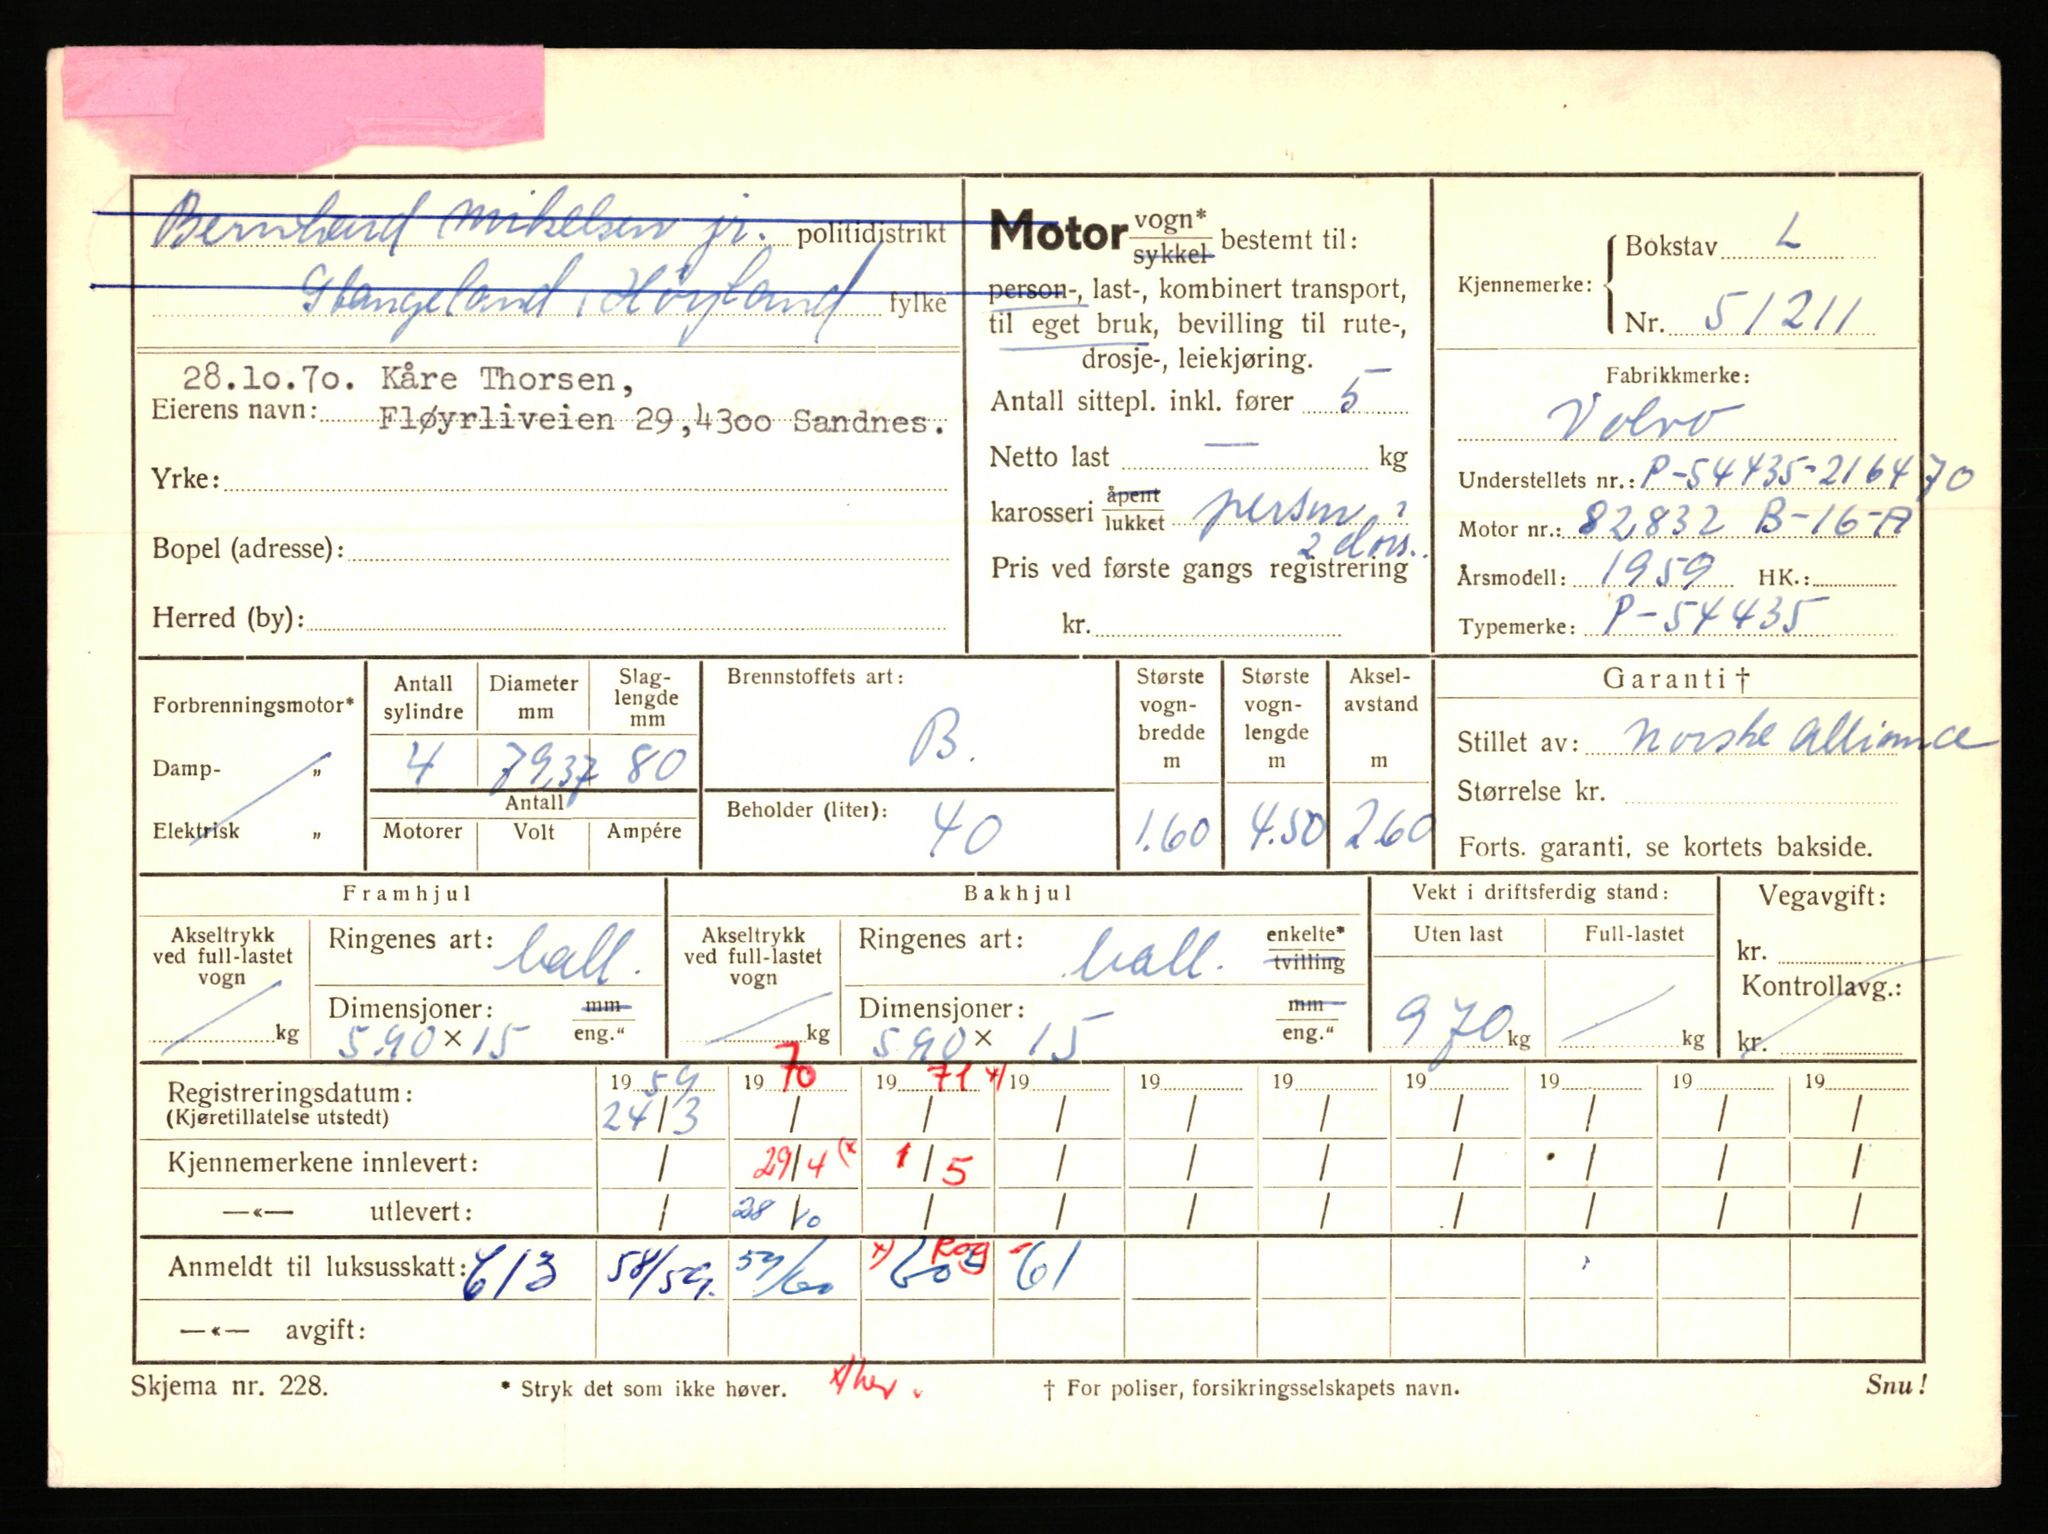 Bernhard Mikelsen jr. politidistrikt
Stangeland, Höyland fylke
28.10.70. Kåre Thorsen,
Eierens navn: Fløyrliveien 29,4300 Sandnes.
Yrke:
Bopel (adresse):
Herred (by):
Motor vogn* sykkel bestemt til:
person-, last-, kombinert transport,
til eget bruk, bevilling til rute-,
drosje-, leiekjøring.
Antall sittepl. inkl. fører 5
Netto last — kg
karosseri åpent lukket person
2 dörs.
Pris ved første gangs registrering
kr.
Kjennemerke: Bokstav L
Nr. 51211
Fabrikkmerke:
Volvo
Understellets nr.: P-54435-216470
Motor nr.: 82832 B-16-A
Årsmodell: 1959 HK.:
Typemerke: P-54435
Forbrenningsmotor*
Damp- „
Elektrisk „
Antall sylindre 4
Diameter mm 79,37
Slag-
lengde
mm 80
Antall
Motorer Volt Ampére
Brennstoffets art:
B.
Beholder (liter): 40
Største
vogn-
bredde
m
1.60
Største
vogn-
lengde
m
4.50
Aksel-
avstand
m
2.60
Garanti †
Stillet av: Norske Alliance
Størrelse kr.
Forts. garanti, se kortets bakside.
Framhjul
Akseltrykk
ved full-lastet
vogn
kg
Ringenes art: ball.
Dimensjoner: mm
5.90 × 15 eng.“
Bakhjul
Akseltrykk
ved full-lastet
vogn
kg
Ringenes art: ball. enkelte* tvilling
Dimensjoner: mm
5.90 × 15 eng.“
Vekt i driftsferdig stand:
Uten last Full-lastet
970 kg kg
Vegavgift:
kr.
Kontrollavg.:
kr.
Registreringsdatum: 19 59 19 70 19 71 x) 19 19 19 19 19 19 19
(Kjøretillatelse utstedt) 24/3 / / / / / / / / /
Kjennemerkene innlevert: / 29/4 (x 1/5 / / / / / / /
—«— utlevert: / 28/10 / / / / / / / /
Anmeldt til luksusskatt: 613 58/59. 59/60 x) Rog - 61
—«— avgift:
Skjema nr. 228. * Stryk det som ikke høver. x) her. † For poliser, forsikringsselskapets navn. Snu!